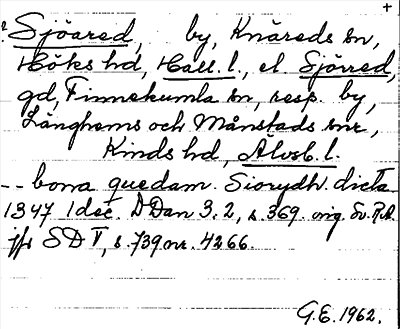 +
? Sjöared, by, Knäreds sn,
Höks hd, Hall. l., el Sjörred,
gd, Finnekumla sn, resp. by,
Länghems och Månstads snr,
Kinds hd, Älvsb. l.
-- bona quedam Siorydh dicta
1347 1 dec. DDan 3.2, s. 369. orig. Sv. R.A.
jfr SD V, s. 739 nr. 4266.
G.E. 1962.